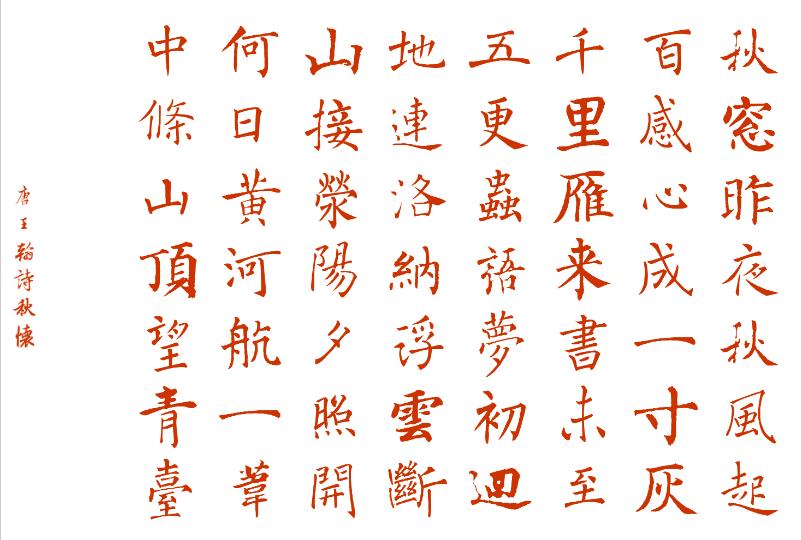 秋窓昨夜秋風起
百感心成一寸灰
千里雁来書未至
五更蟲語夢初迴
地連洛納浮雲斷
山接滎陽夕照開
何日黃河航一葦
中條山頂望青臺
唐王翰詩秋懷